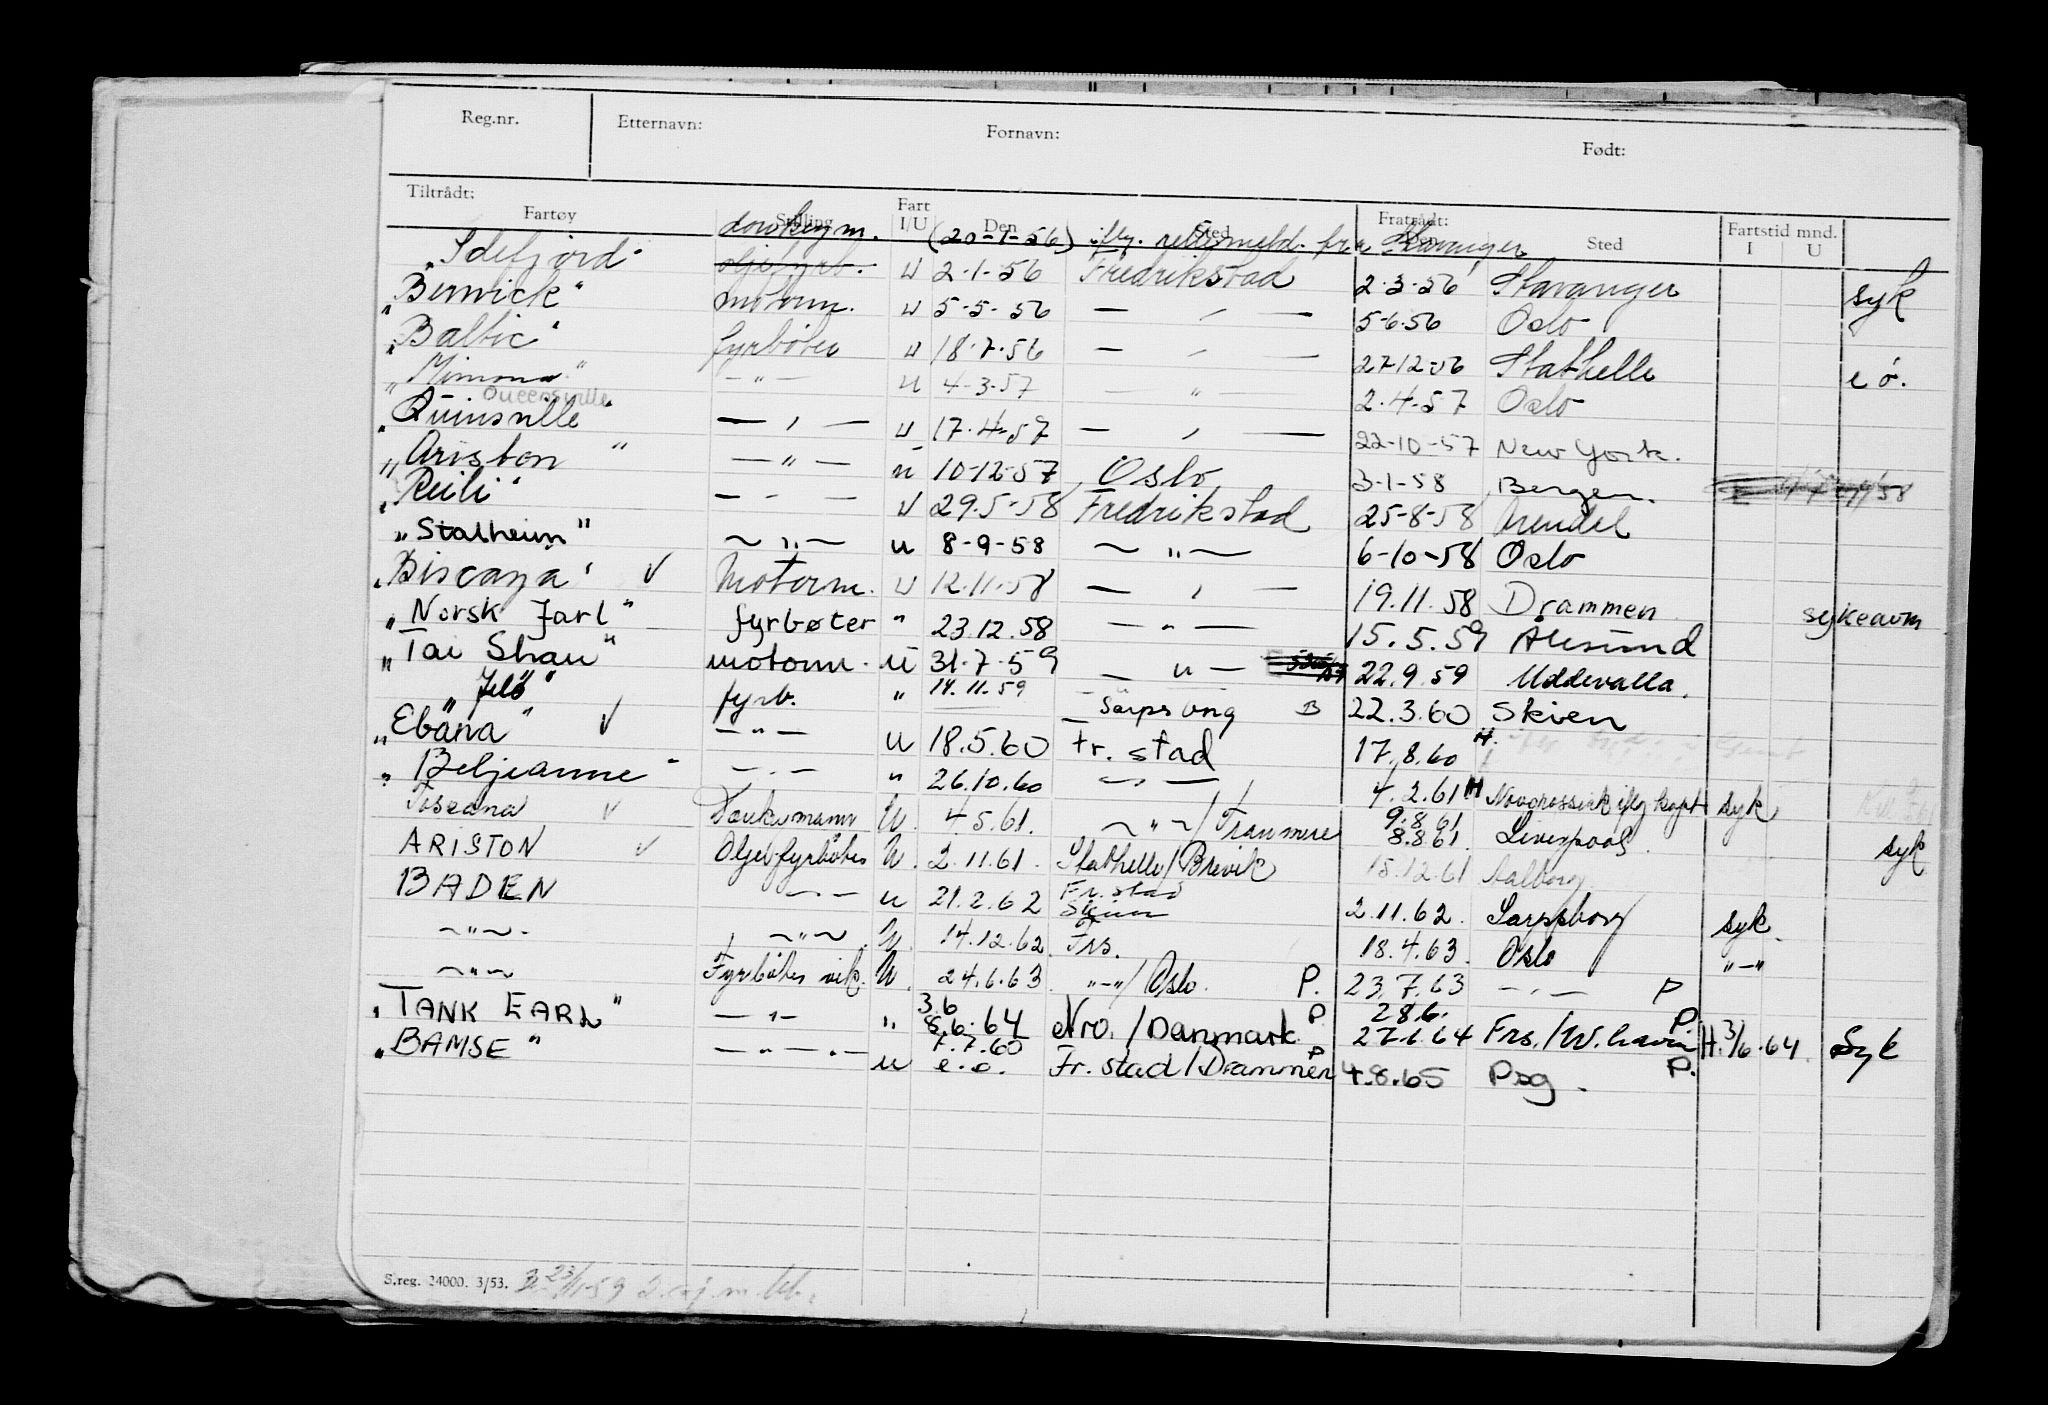 Reg.nr. Etternavn: Fornavn: Født:
Tiltrådt: Fratrådt:
Fartøy Stilling Fart I/U Den Sted Den Sted Fartstid mnd. I U
donkeym. (20-1-56) iflg. rettsmeld. fra Stavanger
"Idefjord" oljefyrb. u 2-1-56 Fredrikstad 2-3-56 Stavanger syk
"Berwick" motorm. u 5-5-56 — " — 5-6-56 Oslo
"Baltic" fyrbøter u 18-7-56 — " — 27-12-56 Stathelle e ó.
"Mimona" — " — u 4-3-57 " 2-4-57 Oslo
Queensville
"Quinsville" — " — u 17-4-57 — " — 22-10-57 New York.
"Ariston" — " — u 10-12-57 Oslo 3-1-58 Bergen.
"Reili" — " — u 29.5-58 Fredrikstad 25-8-58 Arendal
"Stalheim" — " — u 8-9-58 — " — 6-10-58 Oslo
"Biscaya" ✓ Motorm. u 12.11.58 — " — 19.11.58 Drammen sykeavm
"Norsk Jarl" fyrbøter " 23.12.58 — " — 15.5.59 Ålesund
"Tai Shan" motorm. u 31.7.59 — " — 22.9.59 Uddevalla.
"Jelö" fyrb. " 14.11.59 Sarpsborg B 22.3.60 Skien
"Ebana" ✓ — " — u 18.5.60 Fr.stad 17.8.60 H.
"Beljeanne" — " — " 26.10.60 — " — 4.2.61 H Novorossisk iflg kapt syk
9.8.61
Toscana ✓ Donkeymann U. 4.5.61. — " — / Tranmere 8.8.61. Liverpool. syk
ARISTON ✓ Oljefyrbøter U. 2.11.61. Stathelle/Brevik 15.12.61 Aalborg
BADEN — " — u 21.2.62 Fr.stad Skien 2.11.62. Sarpsborg syk.
— " — — " — U. 14.12.62 Frs. 18.4.63. Oslo " — "
— " — Fyrbøter vik. U. 24.6.63. " — " / Oslo. P. 23.7.63 — " — P
3.6 28.6.
"TANK EARL" — " — " 8.6.64 Nro. / Danmark P 27.1.64 Frs./W.havn P. H. 3/6.64. Syk
7.7.60
"BAMSE" — " — " — u e.o. Fr.stad / Drammen P 4.8.65 Psg. P.
S.reg. 24000. 3/53. 23/11-59